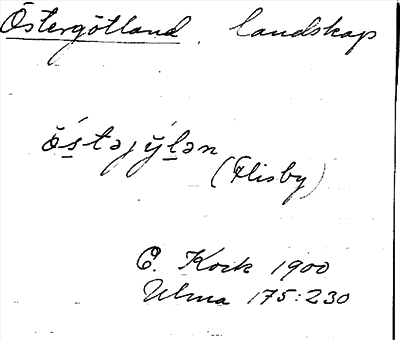 Östergötland. landskap
ŏ́s̲təjy̆́l̲ən
(Flisby)
E. Kock 1900
Ulma 175:230